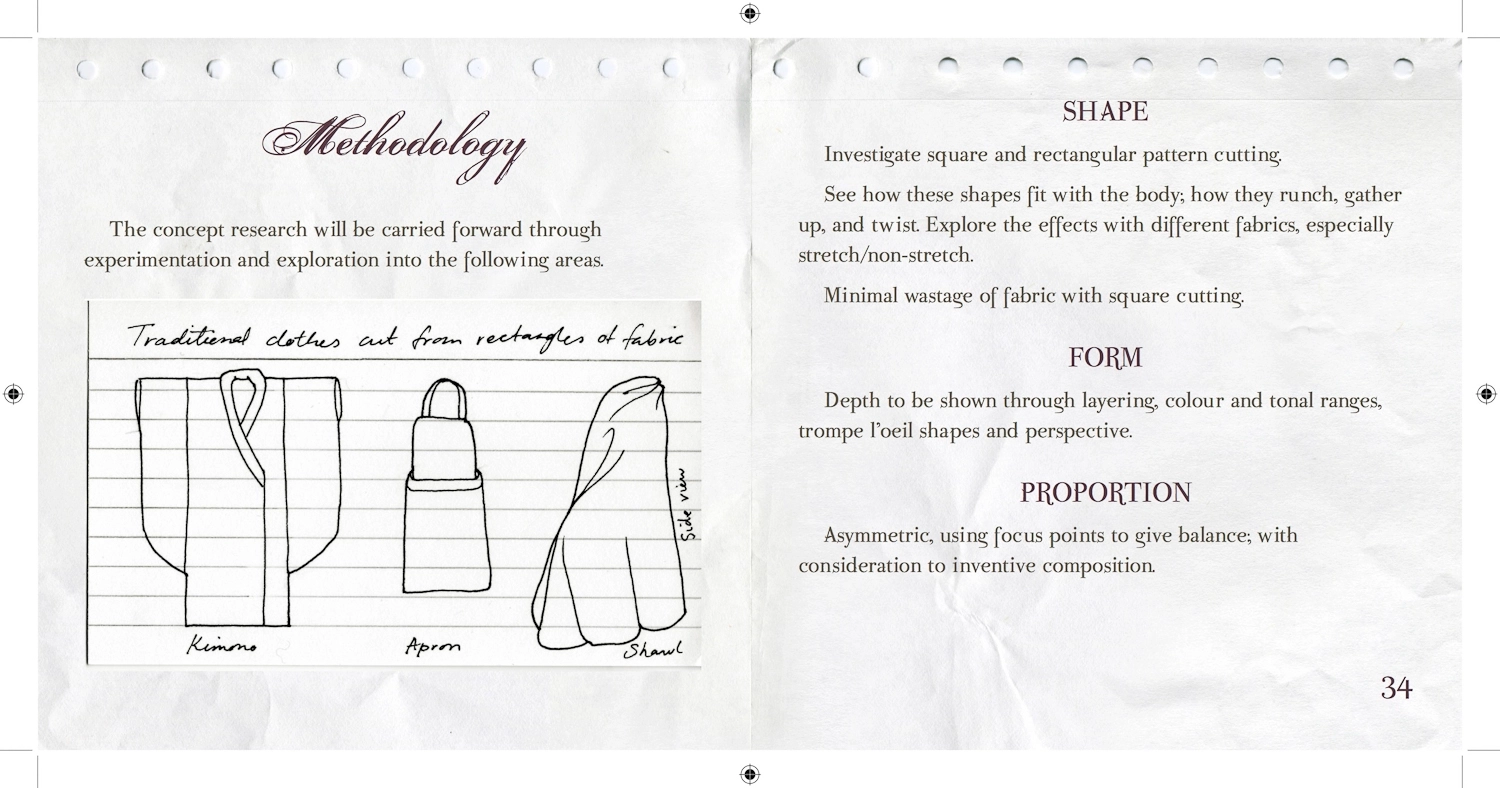 Methodology
The concept research will be carried forward through
experimentation and exploration into the following areas.
Traditional clothes cut from rectangles of fabric
Side view
Kimono
Apron
Shawl
SHAPE
Investigate square and rectangular pattern cutting.
See how these shapes fit with the body; how they runch, gather
up, and twist. Explore the effects with different fabrics, especially
stretch/non-stretch.
Minimal wastage of fabric with square cutting.
FORM
Depth to be shown through layering, colour and tonal ranges,
trompe l'oeil shapes and perspective.
PROPORTION
Asymmetric, using focus points to give balance; with
consideration to inventive composition.
34